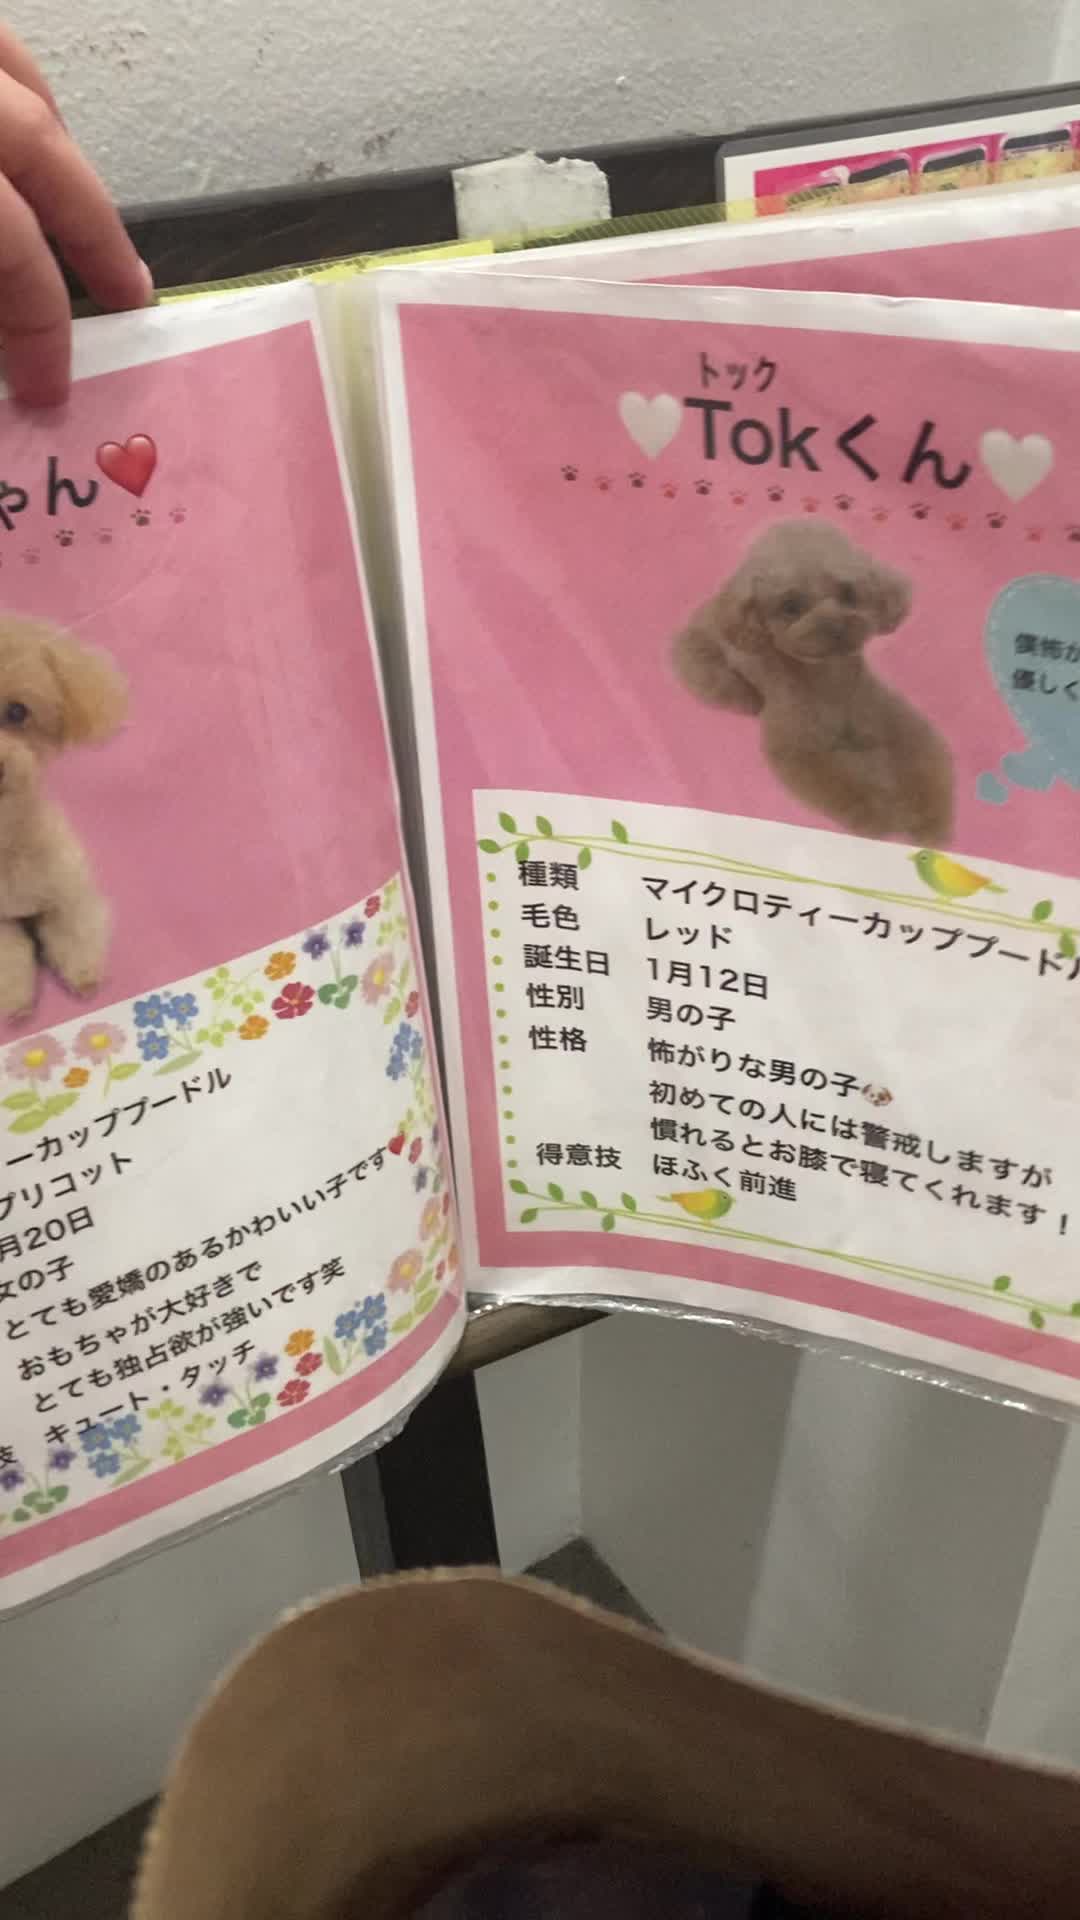 ゃん
ーカッププードル
プリコット
月20日
女の子
とても愛嬌のあるかわいい子です
おもちゃが大好きで
とても独占欲が強いです笑
技 キュート・タッチ
トック
Tokくん
僕怖が
優しく
種類 マイクロティーカッププードル
毛色 レッド
誕生日 1月12日
性別 男の子
性格 怖がりな男の子
初めての人には警戒しますが
慣れるとお膝で寝てくれます！
得意技 ほふく前進